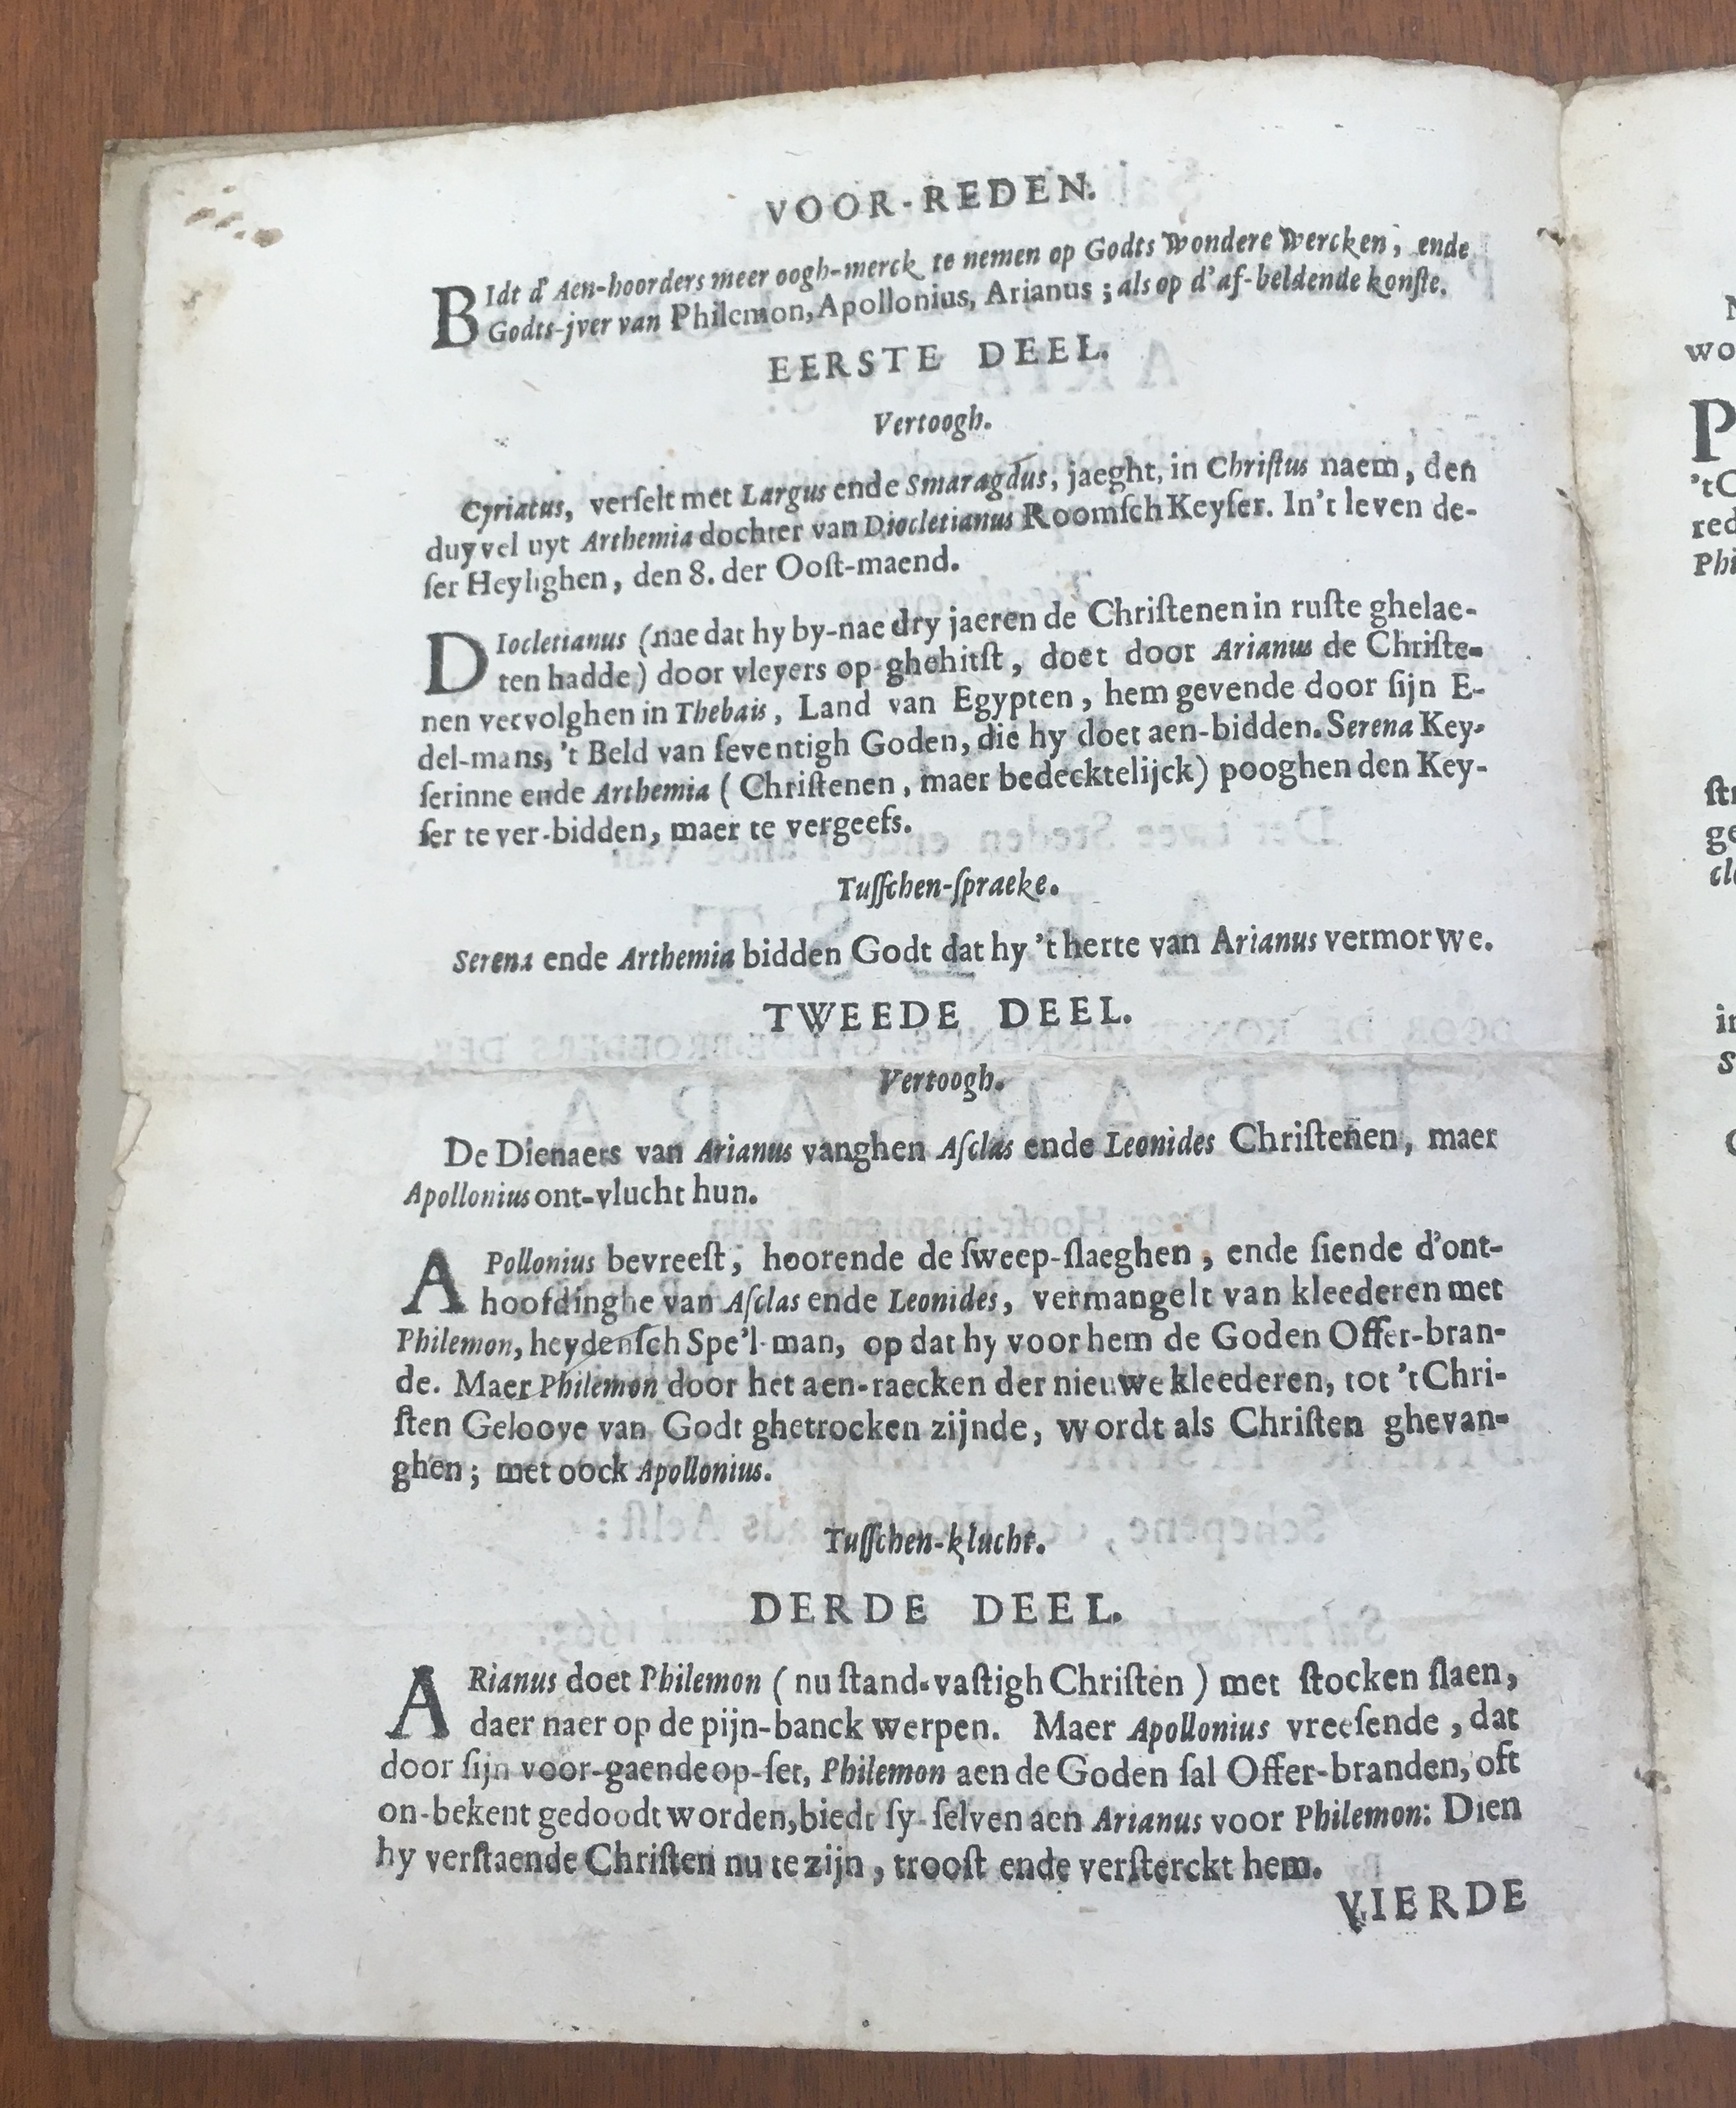 VOOR-REDEN.
BIdt d'Aen-hoorders meer oogh-merck te nemen op Godts wondere wercken, ende
Godts-jver van Philemon, Apollonius, Arianus; als op d'af-beldende konſte.
EERSTE DEEL.
Vertoogh.
Cyriatus, verſelt met Largus ende Smaragdus, jaeght, in Chriſtus naem, den
duyvel uyt Arthemia dochter van Diocletianus Roomſch Keyſer. In't leven de-
ſer Heylighen, den 8. der Ooſt-maend.
DIocletianus (nae dat hy by-nae dry jaeren de Chriſtenen in ruſte ghelae-
ten hadde) door vleyers op-ghehitſt, doet door Arianus de Chriſte-
nen vervolghen in Thebais, Land van Egypten, hem gevende door ſijn E-
del-mans, 't Beld van ſeventigh Goden, die hy doet aen-bidden. Serena Key-
ſerinne ende Arthemia (Chriſtenen, maer bedecktelijck) pooghen den Key-
ſer te ver-bidden, maer te vergeefs.
Tuſſchen-ſpraeke.
Serena ende Arthemia bidden Godt dat hy 't herte van Arianus vermorwe.
TWEEDE DEEL.
Vertoogh.
De Dienaers van Arianus vanghen Aſclas ende Leonides Chriſtenen, maer
Apollonius ont-vlucht hun.
APollonius bevreeſt, hoorende de ſweep-ſlaeghen, ende ſiende d'ont-
hoofdinghe van Aſclas ende Leonides, vermangelt van kleederen met
Philemon, heydenſch Spe'l-man, op dat hy voor hem de Goden Offer-bran-
de. Maer Philemon door het aen-raecken der nieuwe kleederen, tot 't Chri-
ſten Geloove van Godt ghetrocken zijnde, wordt als Chriſten ghevan-
ghen; met oock Apollonius.
Tuſſchen-klucht.
DERDE DEEL.
ARianus doet Philemon (nu ſtand-vaſtigh Chriſten) met ſtocken ſlaen,
daer naer op de pijn-banck werpen. Maer Apollonius vreeſende, dat
door ſijn voor-gaende op-ſet, Philemon aen de Goden ſal Offer-branden, oft
on-bekent gedoodt worden, biedt ſy-ſelven aen Arianus voor Philemon: Dien
hy verſtaende Chriſten nu te zijn, trooſt ende verſterckt hem.
VIERDE